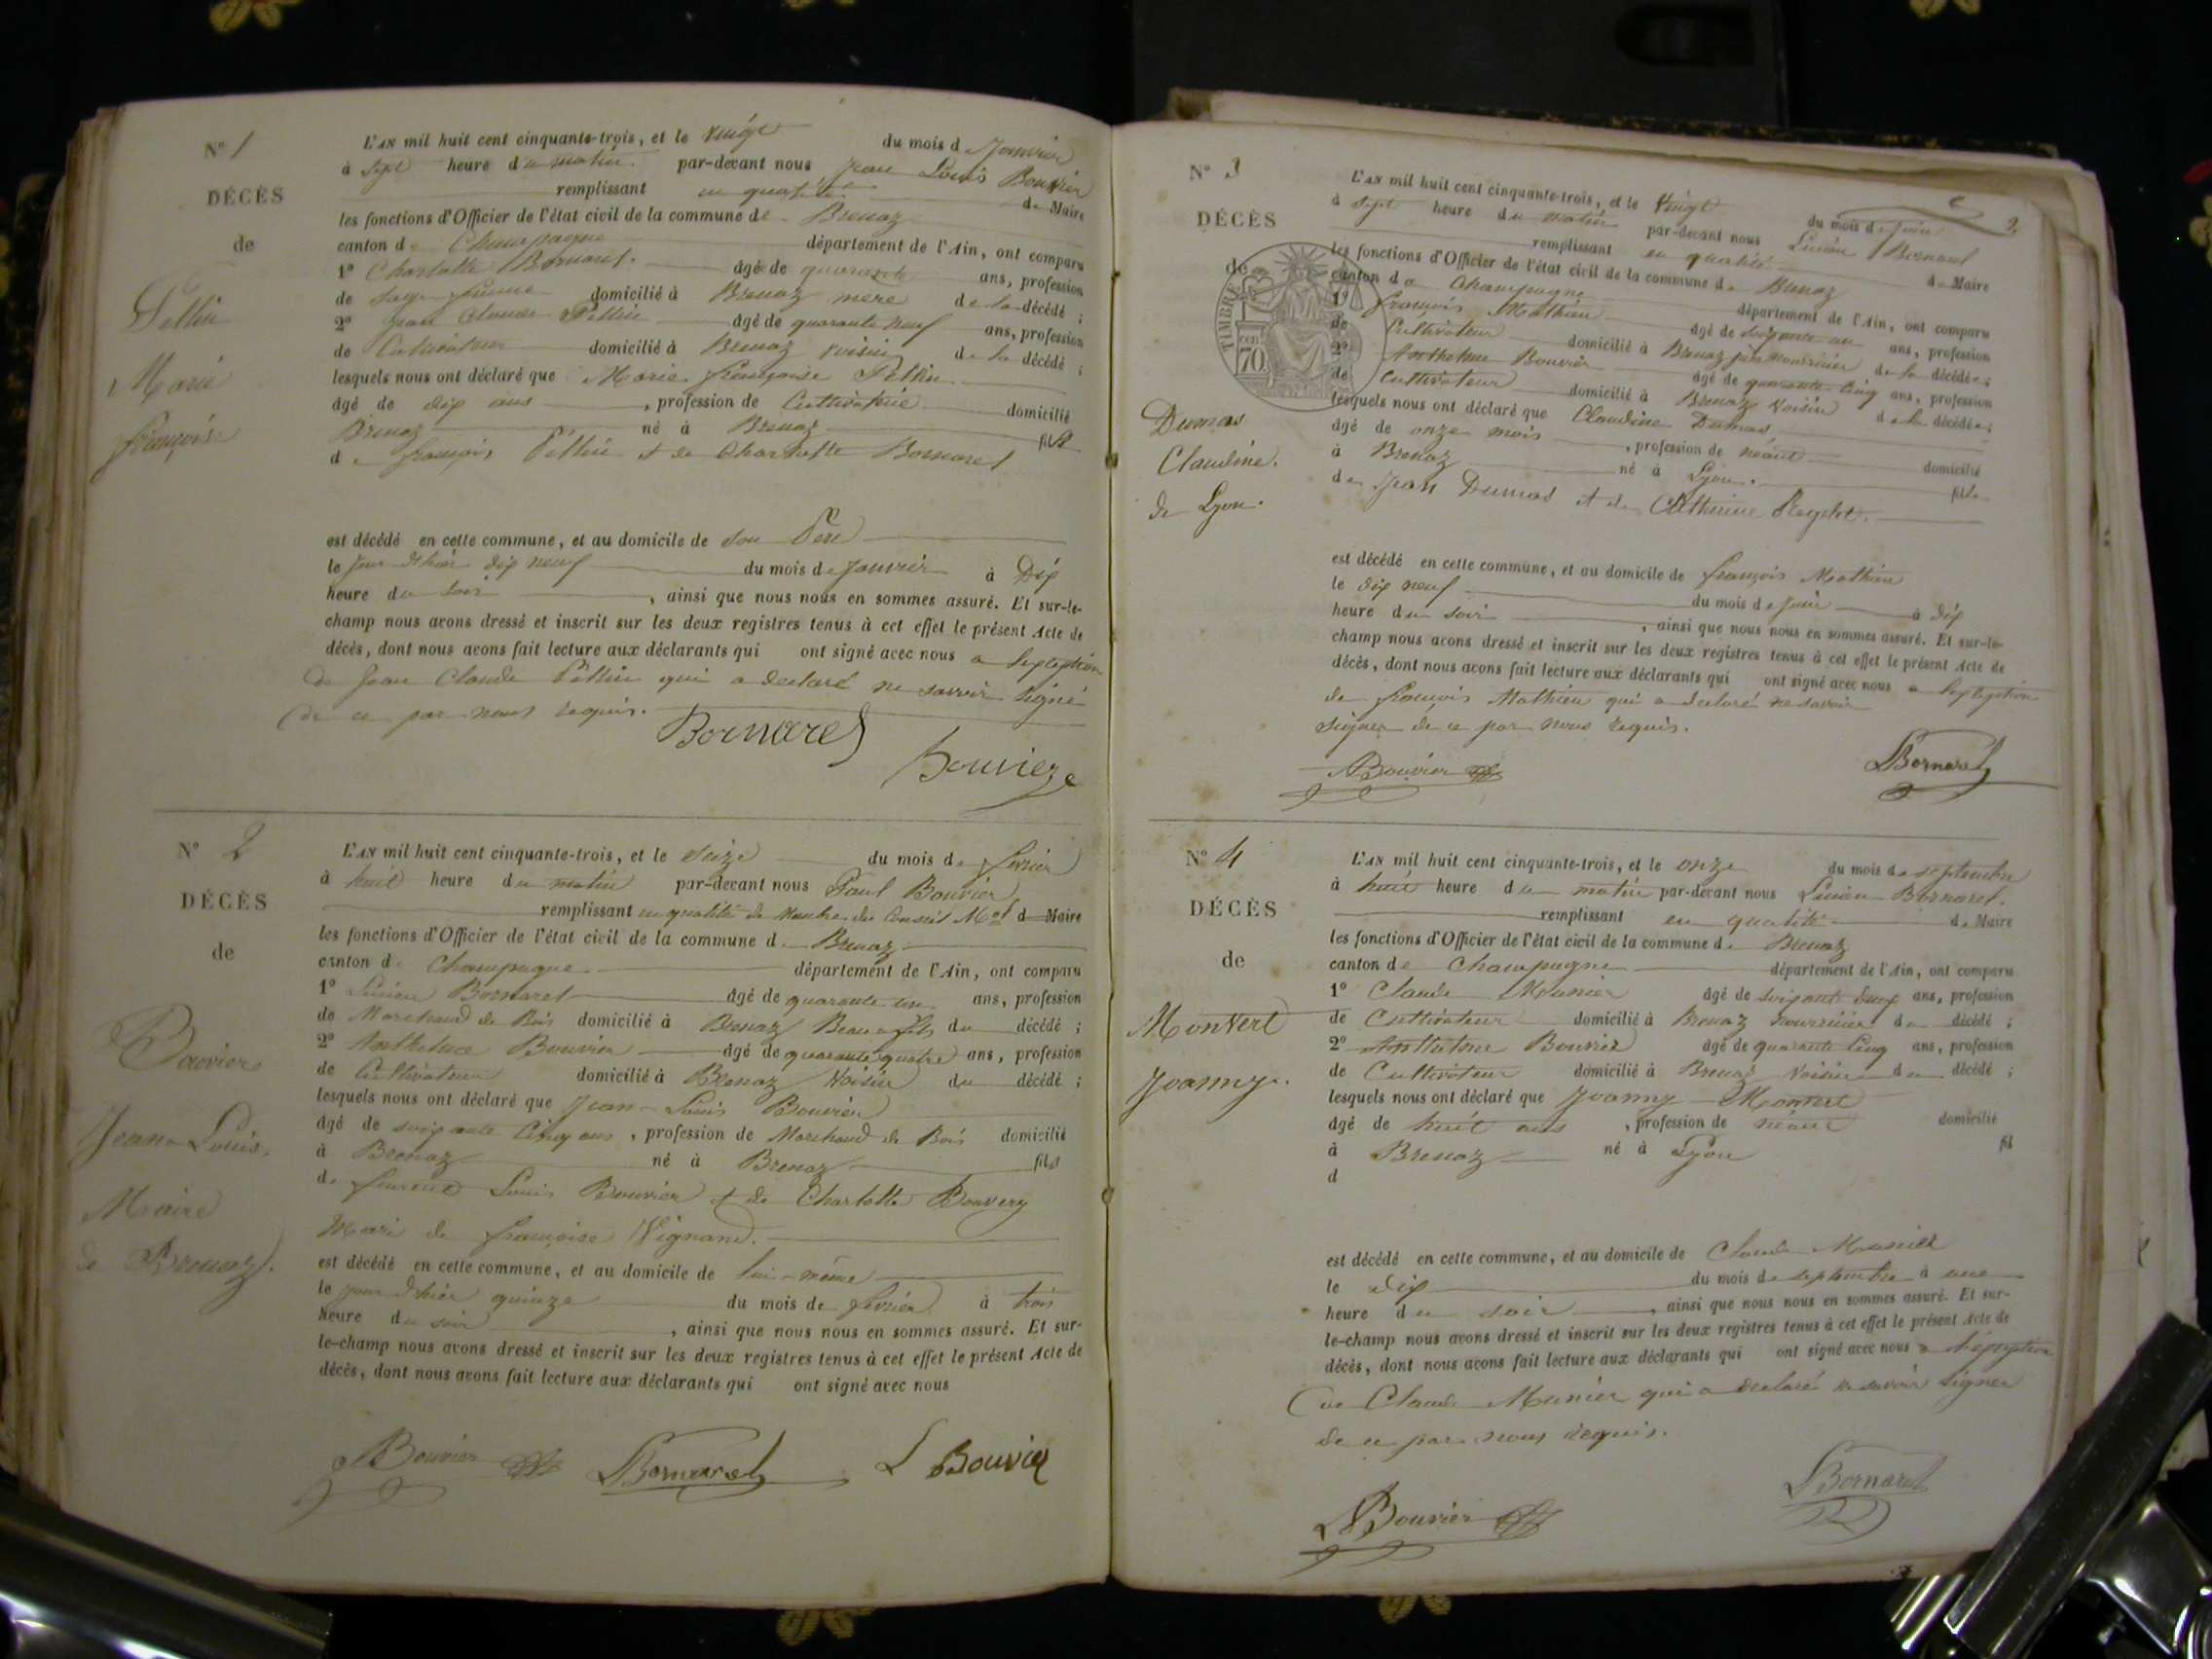 N° 1
DÉCÈS
de
Pellin
Marie
françoise
L'AN mil huit cent cinquante-trois, et le vingt du mois de Janvier
à sept heure du matin par-devant nous Jean Louis Bouvier
remplissant en qualité de Maire
les fonctions d'Officier de l'état civil de la commune de Brenaz
canton de Champagne département de l'Ain, ont comparu
1° Charlotte Bornarel âgé de quarante ans, profession
de sage femme domicilié à Brenaz mère de la décédé ;
2° Jean Claude Pellin âgé de quarante neuf ans, profession
de Cultivateur domicilié à Brenaz voisin de la décédé ;
lesquels nous ont déclaré que Marie françoise Pellin
âgé de dix ans , profession de Cultivatrice domicilié
Brenaz né à Brenaz fille
de françois Pellin et de Charlotte Bornarel
est décédé en cette commune, et au domicile de son Père
le jour d'hier dix neuf du mois de Janvier à Dix
heure du soir , ainsi que nous nous en sommes assuré. Et sur-le-
champ nous avons dressé et inscrit sur les deux registres tenus à cet effet le présent Acte de
décès, dont nous avons fait lecture aux déclarants qui ont signé avec nous a l'exception
de Jean Claude Pellin qui a déclaré ne savoir signé
de ce par nous requis.
Bornarel
Bouvier
N° 2
DÉCÈS
de
Bouvier
Jean-Louis,
Maire
de Brenaz.
L'AN mil huit cent cinquante-trois, et le seize du mois de février
à huit heure du matin par-devant nous Paul Bouvier
remplissant en qualité de Membre du Conseil Mal d Maire
les fonctions d'Officier de l'état civil de la commune de Brenaz
canton de Champagne département de l'Ain, ont comparu
1° Lucien Bornarel âgé de quarante un ans, profession
de Marchand de Bois domicilié à Brenaz Beau-fils du décédé ;
2° Anthelme Bouvier âgé de quarante quatre ans, profession
de Cultivateur domicilié à Brenaz Voisin du décédé ;
lesquels nous ont déclaré que Jean-Louis Bouvier
âgé de soixante Cinq ans , profession de Marchand de Bois domicilié
à Brenaz né à Brenaz fils
de Louis Bouvier et de Charlotte Bouvery
Mari de françoise Vignand.
est décédé en cette commune, et au domicile de lui-même
le jour d'hier quinze du mois de février à trois
heure du soir , ainsi que nous nous en sommes assuré. Et sur-
le-champ nous avons dressé et inscrit sur les deux registres tenus à cet effet le présent Acte de
décès, dont nous avons fait lecture aux déclarants qui ont signé avec nous
ABouvier LBornarel L Bouvier
2
N° 3
DÉCÈS
de
TIMBRE
70
Dumas
Claudine.
de Lyon.
L'AN mil huit cent cinquante-trois, et le Vingt du mois de Juin
à sept heure du matin par-devant nous Lucien Bornarel
remplissant en qualité de Maire
les fonctions d'Officier de l'état civil de la commune de Brenaz
canton de Champagne département de l'Ain, ont comparu
1° françois Mathieu âgé de soixante un ans, profession
de Cultivateur domicilié à Brenaz père nourricier de la décédée ;
2° Anthelme Bouvier âgé de quarante-Cinq ans, profession
de Cultivateur domicilié à Brenaz Voisin de la décédée ;
lesquels nous ont déclaré que Claudine Dumas
âgé de onze mois , profession de néant domicilié
à Brenaz né à Lyon. fille
de Jean Dumas et de Catherine
est décédé en cette commune, et au domicile de françois Mathieu
le dix neuf du mois de Juin à dix
heure du soir , ainsi que nous nous en sommes assuré. Et sur-le-
champ nous avons dressé et inscrit sur les deux registres tenus à cet effet le présent Acte de
décès, dont nous avons fait lecture aux déclarants qui ont signé avec nous a l'exception
de françois Mathieu qui a déclaré ne savoir
signer de ce par nous requis.
ABouvier LBornarel
N° 4
DÉCÈS
de
Montvert
Joanny.
L'AN mil huit cent cinquante-trois, et le onze du mois de septembre
à huit heure du matin par-devant nous Lucien Bornarel.
remplissant en qualité de Maire
les fonctions d'Officier de l'état civil de la commune de Brenaz
canton de Champagne département de l'Ain, ont comparu
1° Claude Munier âgé de soixante deux ans, profession
de Cultivateur domicilié à Brenaz nourricier du décédé ;
2° Anthelme Bouvier âgé de quarante Cinq ans, profession
de Cultivateur domicilié à Brenaz Voisin du décédé ;
lesquels nous ont déclaré que Joanny Montvert
âgé de huit ans , profession de néant domicilié
à Brenaz né à Lyon fil
d
est décédé en cette commune, et au domicile de Claude Munier
le dix du mois de septembre à une
heure du soir , ainsi que nous nous en sommes assuré. Et sur-
le-champ nous avons dressé et inscrit sur les deux registres tenus à cet effet le présent Acte de
décès, dont nous avons fait lecture aux déclarants qui ont signé avec nous a l'exception
de Claude Munier qui a déclaré ne savoir signer
de ce par nous requis.
ABouvier LBornarel